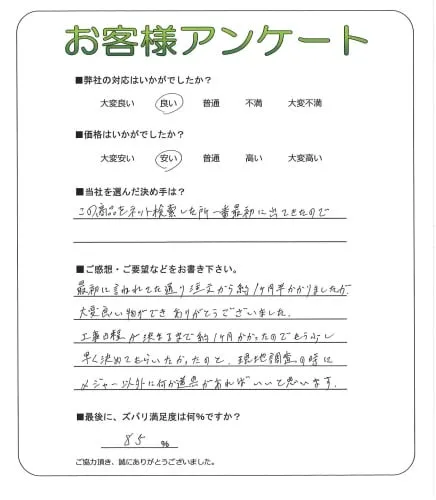 お客様アンケート
■弊社の対応はいかがでしたか？
大変良い 良い 普通 不満 大変不満
■価格はいかがでしたか？
大変安い 安い 普通 高い 大変高い
■当社を選んだ決め手は？
この商品をネット検索した所一番最初に出てきたので
■ご感想・ご要望などをお書き下さい。
最初に言われてた通り注文から約1ヶ月半かかりましたが、
大変良い物ができ ありがとうございました。
工事の程が決まるまで約1ヶ月かかったのでもう少し
早く決めてもらいたかったのと、現地調査の時に
メジャー以外に何か道具があればいいと思います。
■最後に、ズバリ満足度は何%ですか？
85 %
ご協力頂き、誠にありがとうございました。